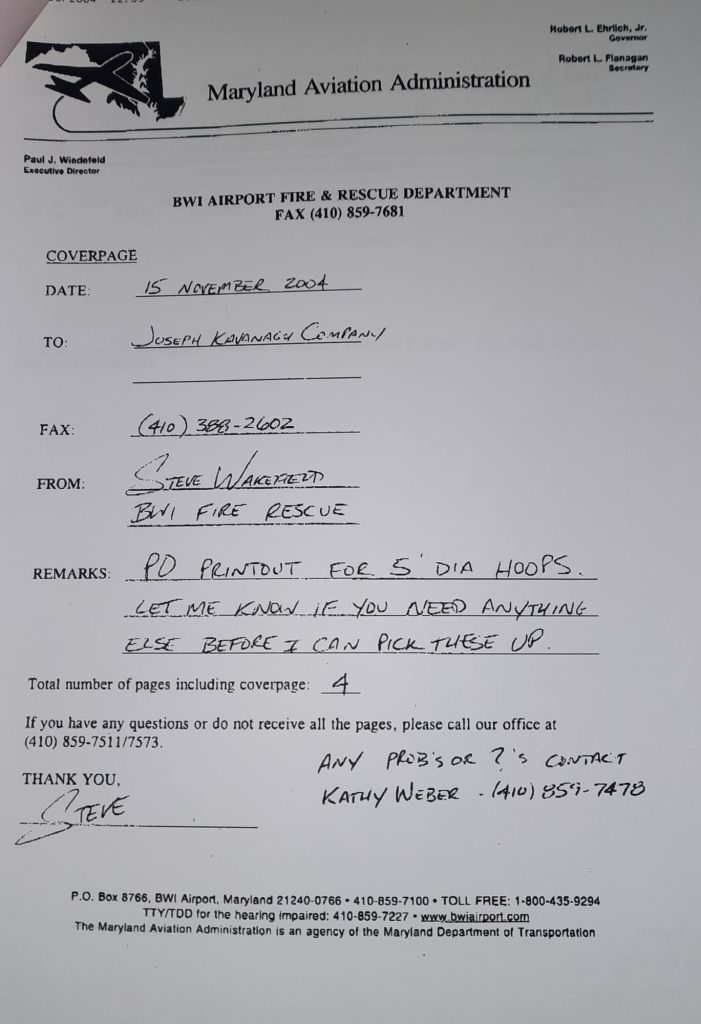 Robert L. Ehrlich, Jr.
Governor
Robert L. Flanagan
Secretary
Maryland Aviation Administration
Paul J. Wiedefeld
Executive Director
BWI AIRPORT FIRE & RESCUE DEPARTMENT
FAX (410) 859-7681
COVERPAGE
DATE: 15 NOVEMBER 2004
TO: JOSEPH KAVANAGH COMPANY
FAX: (410) 388-2602
FROM: STEVE WAKEFIELD
BWI FIRE RESCUE
REMARKS: PO PRINTOUT FOR 5' DIA HOOPS.
LET ME KNOW IF YOU NEED ANYTHING
ELSE BEFORE I CAN PICK THESE UP.
Total number of pages including coverpage: 4
If you have any questions or do not receive all the pages, please call our office at
(410) 859-7511/7573.
ANY PROB'S OR ?'S CONTACT
KATHY WEBER - (410) 859-7478
THANK YOU,
STEVE
P.O. Box 8766, BWI Airport, Maryland 21240-0766 • 410-859-7100 • TOLL FREE: 1-800-435-9294
TTY/TDD for the hearing impaired: 410-859-7227 • www.bwiairport.com
The Maryland Aviation Administration is an agency of the Maryland Department of Transportation